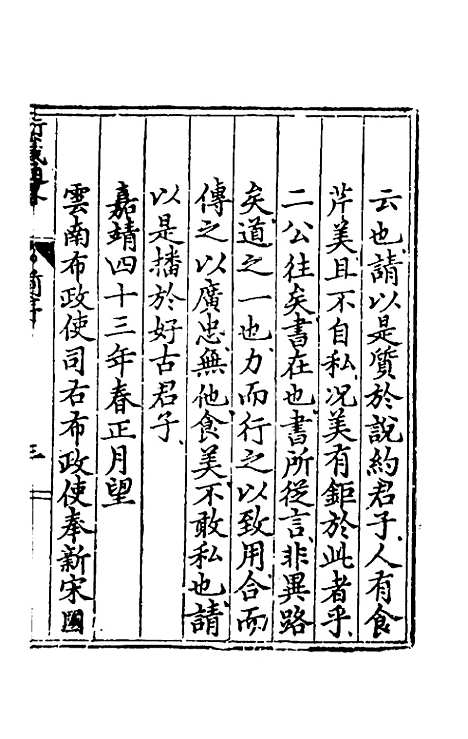 云也請以是質於說約君子人有食
芹美且不自私况美有鉅於此者乎
二公往矣書在也書所從言非異路
矣道之一也力而行之以致用合而
傳之以廣忠無他食美不敢私也請
以是播於好古君子
嘉靖四十三年春正月望
雲南布政使司右布政使奉新宋國